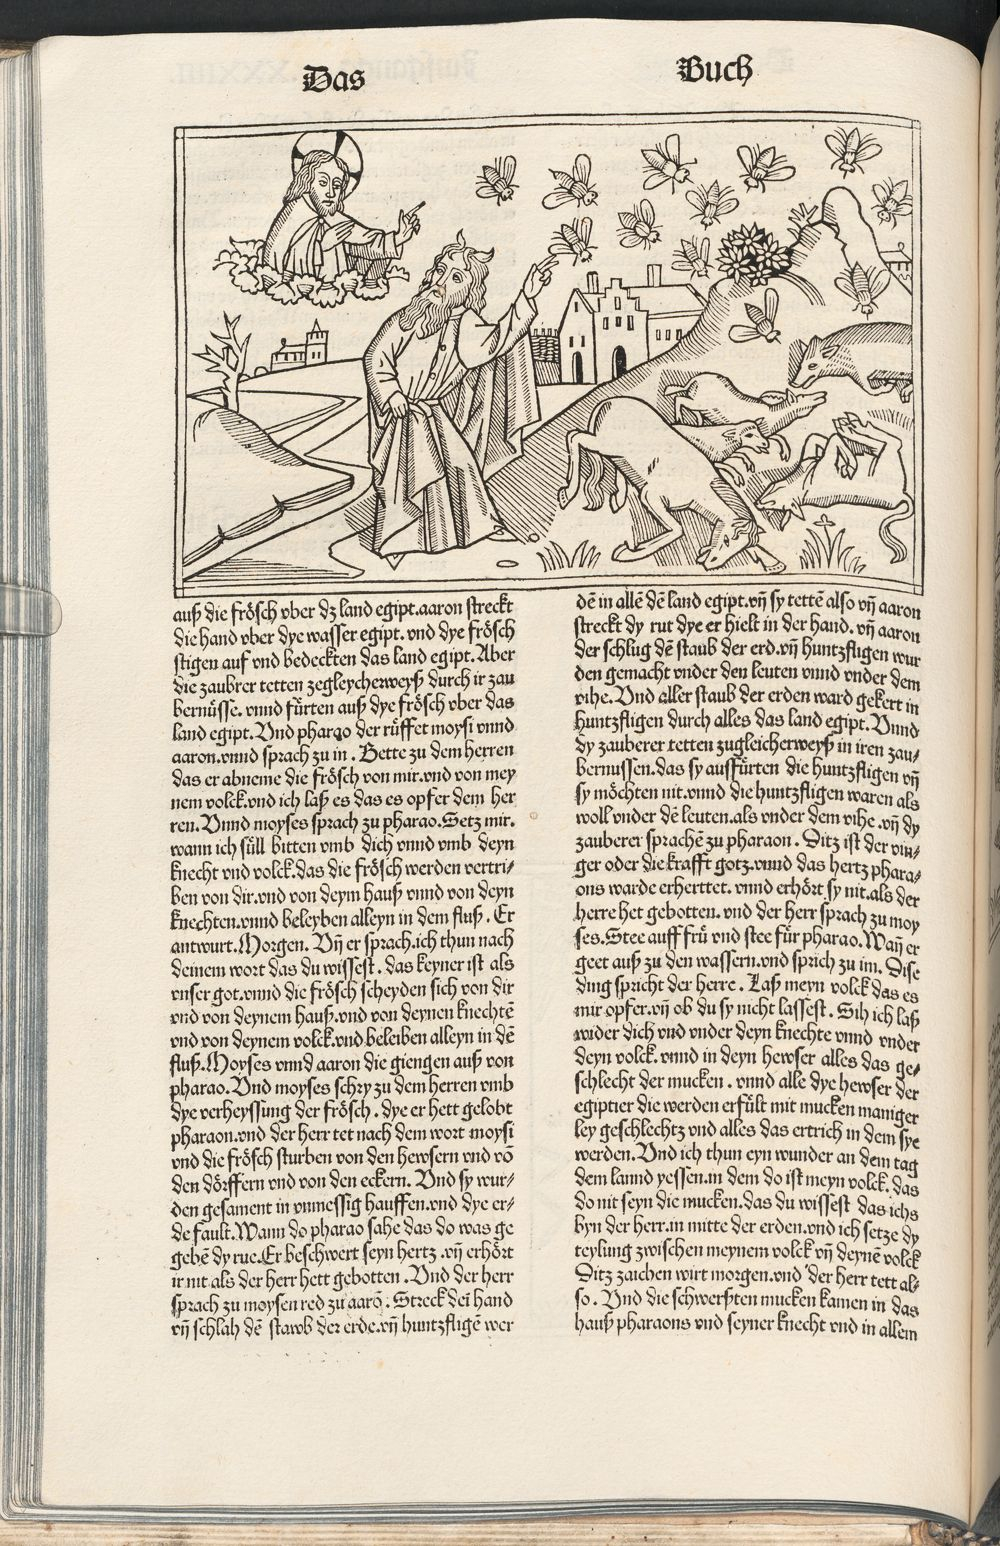 Das Buch
auß die frösch vber dz land egipt.aaron streckt
die hand vber dye wasser egipt. vnd dye frösch
stigen auf vnd bedeckten das land egipt. Aber
die zaubrer tetten zegleycherweyß durch ir zau
bernüsse. vnnd fürten auß dye frösch vber das
land egipt. Vnd pharao der rüffet moysi vnnd
aaron.vnnd sprach zu in . Bette zu dem herren
das er abneme die frösch von mir.vnd von mey
nem volck.vnd ich laß es das es opfer dem her
ren. Vnnd moyses sprach zu pharao.Setz mir.
wann ich süll bitten vmb dich vnnd vmb deyn
knecht vnd volck.das die frösch werden vertri⸗
ben von dir.vnd von deym hauß vnnd von deyn
knechten.vnnd beleyben alleyn in dem fluß . Er
antwurt.Morgen. Vn̄ er sprach.ich thun nach
deinem wort das du wissest . das keyner ist als
vnser got.vnnd die frösch scheyden sich von dir
vnd von deynem hauß.vnd von deynen knechtē
vnd von deynem volck.vnd beleiben alleyn in dē
fluß. Moyses vnnd aaron die giengen auß von
pharao. Vnd moyses schry zu dem herren vmb
dye verheyssung der frösch . dye er hett gelobt
pharaon.vnd der herr tet nach dem wort moysi
vnd die frösch sturben von den hewsern vnd vō
den dörffern vnd von den eckern. Vnd sy wur⸗
den gesament in vnmessig hauffen.vnd dye er⸗
de fault.Wann do pharao sahe das do was ge
gebē dy rue.Er beschwert seyn hertz .vn̄ erhört
ir nit als der herr hett gebotten . Vnd der herr
sprach zu moysen red zu aarō . Streck dei hand
vn̄ schlah dē stawb der erde.vn̄ huntzfligē wer
dē in allē dē land egipt.vn̄ sy tettē also vn̄ aaron
streckt dy rut dye er hielt in der hand. vn̄ aaron
der schlug dē staub der erd.vn̄ huntzfligen wur
den gemacht vnder den leuten vnnd vnder dem
vihe. Vnd aller staub der erden ward gekert in
huntzfligen durch alles das land egipt. Vnnd
dy zauberer tetten zugleicherweyß in iren zau⸗
bernussen.das sy ausfürten die huntzfligen vn̄
sy möchten nit.vnnd die huntzfligen waren als
woll vnder dē leuten.als vnder dem vihe .vn̄ dy
zauberer sprachē zu pharaon . Ditz ist der vin⸗
ger oder die krafft gotz.vnnd das hertz phara⸗
ons warde erherttet. vnnd erhört sy nit.als der
herre het gebotten. vnd der herr sprach zu moy
ses.Stee auff frü vnd stee für pharao.Wan̄ er
geet auß zu den wassern.vnd sprich zu im. Dise
ding spricht der herre . Laß meyn volck das es
mir opfer.vn̄ ob du sy nicht lassest . Sih ich laß
wider dich vnd vnder deyn knechte vnnd vnder
deyn volck. vnnd in deyn hewser alles das ge⸗
schlecht der mucken . vnnd alle dye hewser der
egiptier die werden erfült mit mucken maniger
ley geschlechtz vnd alles das ertrich in dem sye
werden. Vnd ich thun eyn wunder an dem tag
dem lannd yessen.in dem do ist meyn volck. das
do nit seyn die mucken.das du wissest das ichs
byn der herr.in mitte der erden.vnd ich setze dy
teylung zwischen meynem volck vn̄ deynē volck
Ditz zaichen wirt morgen.vnd der herr tett al⸗
so . Vnd die schwerßten mucken kamen in das
hauß pharaons vnd seyner knecht vnd in allem